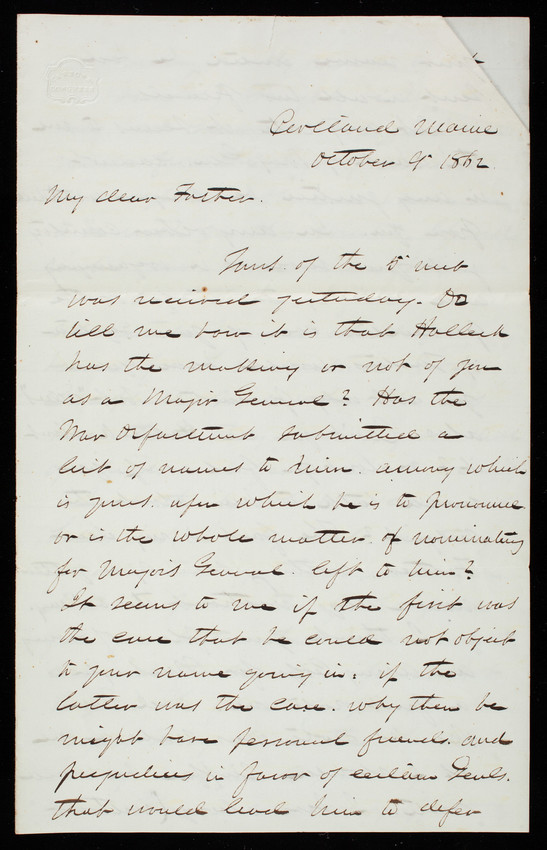 Portland Maine
October 9th 1862
My dear Father.
Yours. of the 5th inst
was received yesterday. Do
tell me how it is that Halleck
has the making or not of you
as a Major General? Has the
War Department submitted a
list of names to him. among which
is yours. upon which he is to pronounce
or is the whole matter of nominating
for Majors General. left to him?
It seems to me if the first was
the case that he could not object
to your name going in; if the
latter was the case. why then he
might have personal friends. and
prejudices in favor of certain Genls.
that would lead him to defer